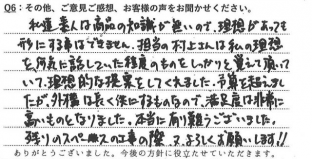 Q6：その他、ご意見ご感想、お客様の声をお聞かせください。
私達素人は商品の知識が無いので、理想があっても
形にする事はできません。担当の村上さんは私の理想
を何気に話していた程度のものをしっかりと覚えて頂いて
いて、理想的な提案をしてくれました。予算を超えまし
たが、外構は長く保にするものなので、満足度は非常に
高いものとなりました。本当に有り難うございました。
残りのスペースの工事の際、又、よろしくお願いします!!
ありがとうございました。今後の方針に役立たせていただきます。